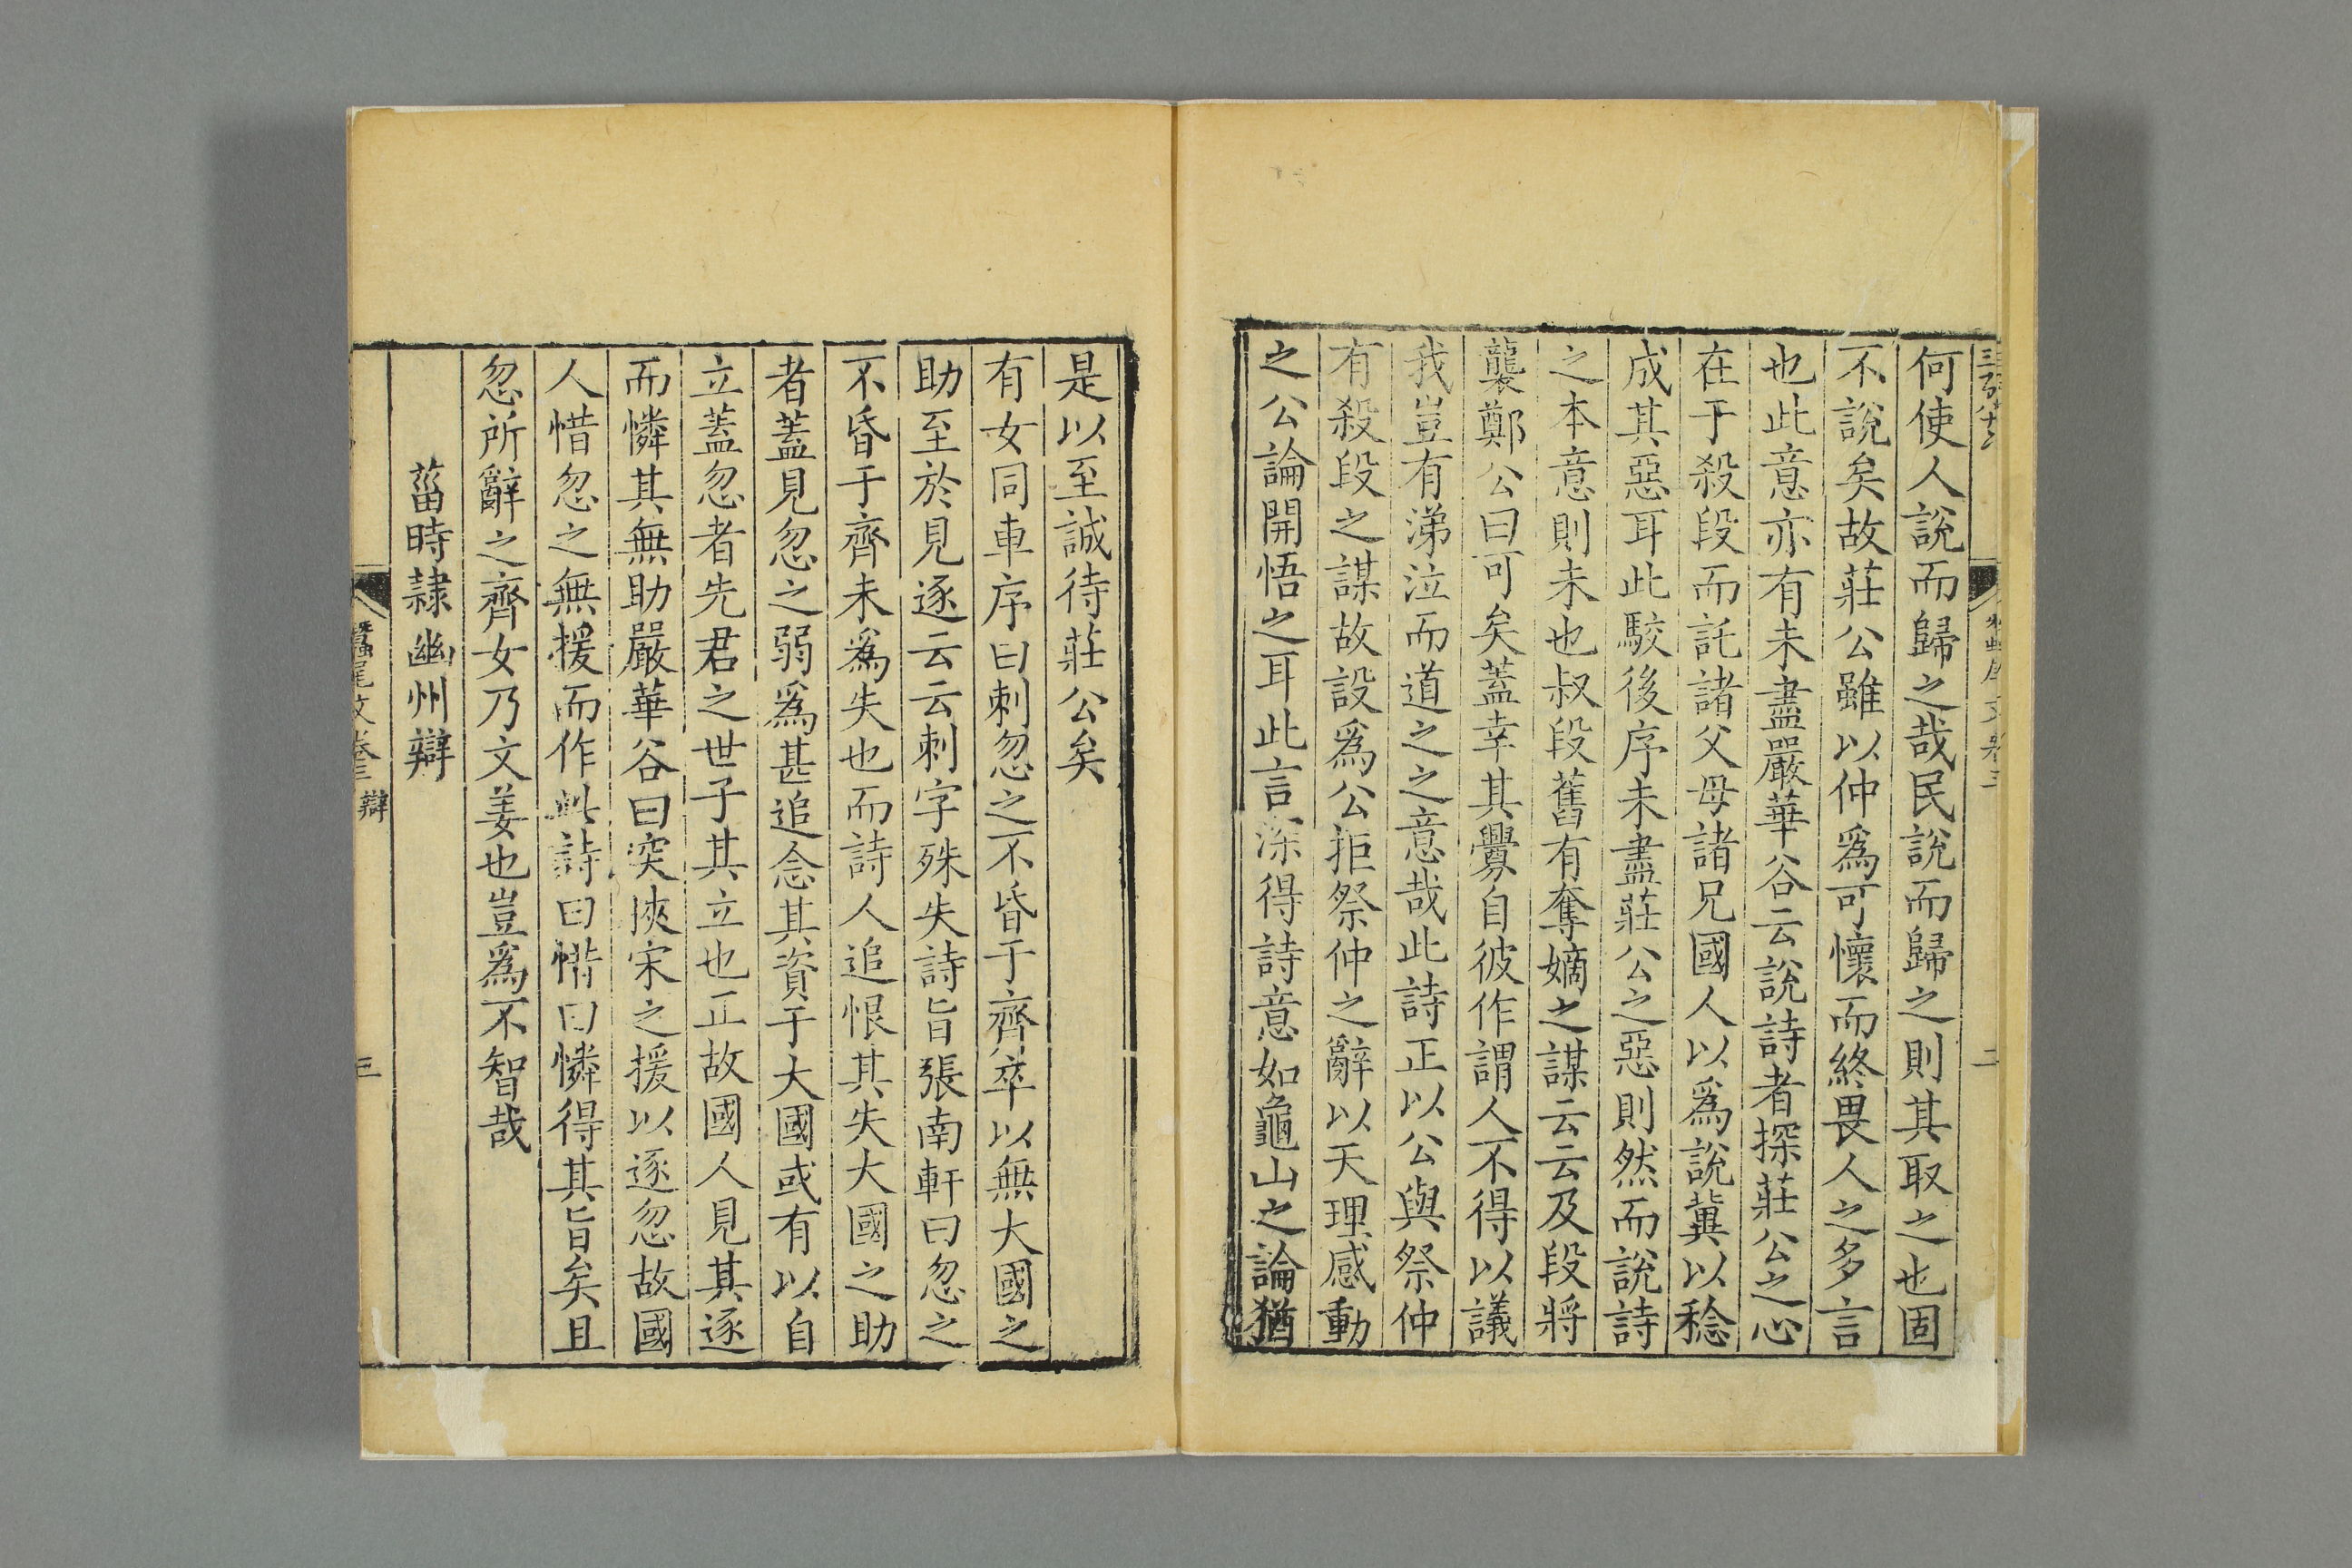 何使人說而歸之哉民說而歸之則其取之也固
不說矣故莊公雖以仲爲可懷而終畏人之多言
也此意亦有未盡嚴華谷云說詩者探莊公之心
在于殺段而託諸父母諸兄國人以爲說冀以稔
成其惡耳此駮後序未盡莊公之惡則然而說詩
之本意則未也叔段舊有奪嫡之謀云云及段將
襲鄭公曰可矣蓋幸其釁自彼作謂人不得以議
我豈有涕泣而道之之意哉此詩正以公與祭仲
有殺段之謀故設爲公拒祭仲之辭以天理感動
之公論開悟之耳此言深得詩意如龜山之論猶
是以至誠待莊公矣
有女同車序曰刺忽之不昏于齊卒以無大國之
助至於見逐云云刺字殊失詩旨張南軒曰忽之
不昏于齊未爲失也而詩人追恨其失大國之助
者蓋見忽之弱爲甚追念其資于大國或有以自
立蓋忽者先君之世子其立也正故國人見其逐
而憐其無助嚴華谷曰突挾宋之援以逐忽故國
人惜忽之無援而作此詩曰惜曰憐得其旨矣且
忽所辭之齊女乃文姜也豈爲不智哉
菑時隷幽州辯
蠶尾文卷三 辯
三